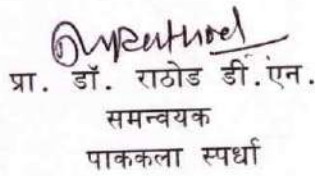 प्रा. डॉ. राठोड डी.एन.
समन्वयक
पाककला स्पर्धा